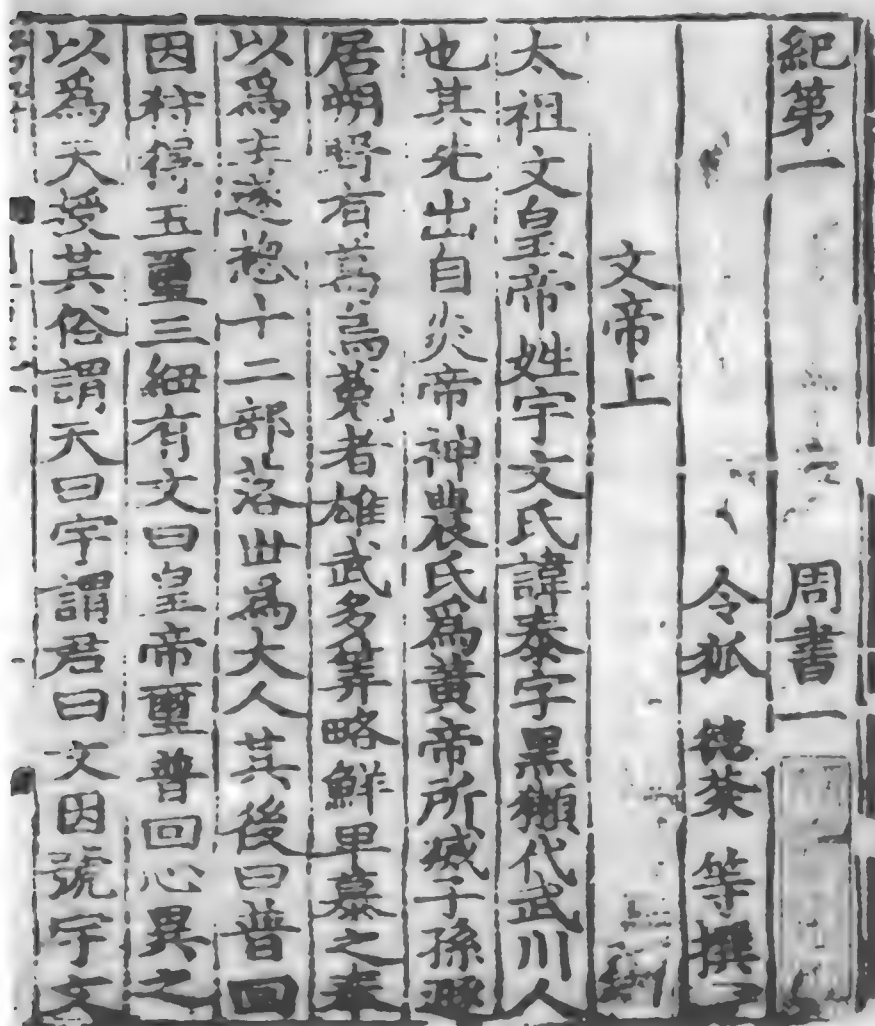 紀第一 周書一
令狐 德棻 等撰
文帝上
太祖文皇帝姓宇文氏諱泰字黑獺代武川人
也其先出自炎帝神農氏爲黃帝所滅子孫遯
居朔野有葛烏菟者雄武多筭略鮮卑慕之奉
以爲主遂總十二部落世爲大人其後曰普回
因狩得玉璽三紐有文曰皇帝璽普回心異之
以爲天授其俗謂天曰宇謂君曰文因號宇文